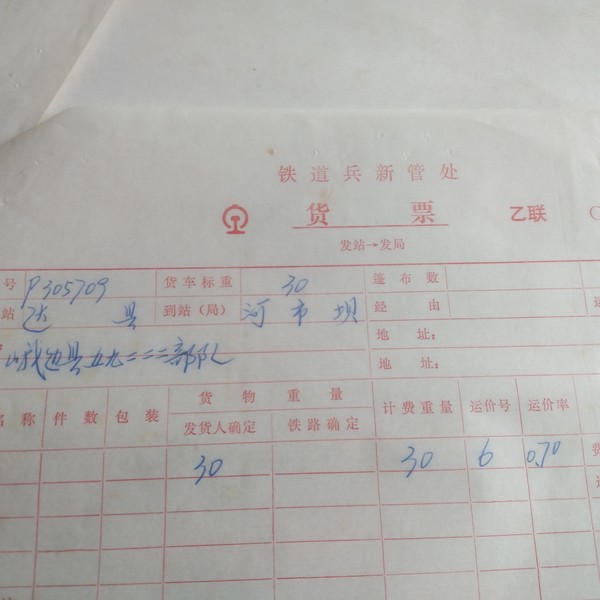 铁道兵新管处
货票 乙联
发站→发局
号 P305709 货车标重 30 篷布数
站 达县 到站(局) 河市坝 经由 运
峨边县五九二二二部队 地址:
地址:
货物重量
名称 件数 包装 发货人确定 铁路确定 计费重量 运价号 运价率 费
30 30 6 0.70